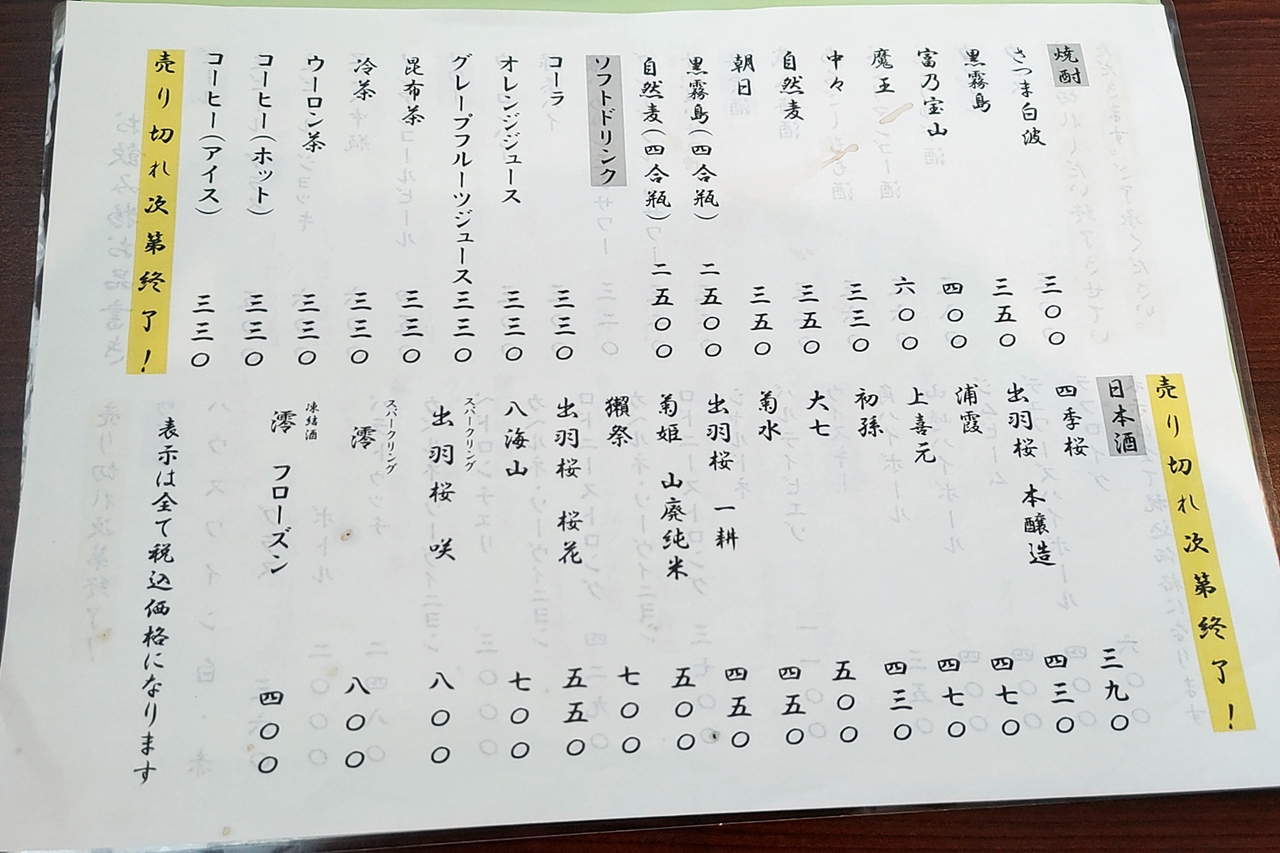 焼酎
さつま白波 三〇〇
黒霧島 三五〇
富乃宝山 四〇〇
魔王 六〇〇
中々 三三〇
自然麦 三五〇
朝日 三五〇
黒霧島(四合瓶) 二五〇〇
自然麦(四合瓶) 二五〇〇
ソフトドリンク
コーラ 三三〇
オレンジジュース 三三〇
グレープフルーツジュース 三三〇
昆布茶 三三〇
冷茶 三三〇
ウーロン茶 三三〇
コーヒー(ホット) 三三〇
コーヒー(アイス) 三三〇
売り切れ次第終了!
売り切れ次第終了!
日本酒
四季桜 三九〇
出羽桜 本醸造 四三〇
浦霞 四七〇
上喜元 四七〇
初孫 四三〇
大七 五〇〇
菊水 四五〇
出羽桜 一耕 四五〇
菊姫 山廃純米 五〇〇
獺祭 七〇〇
出羽桜 桜花 五五〇
八海山 七〇〇
スパークリング
出羽桜 咲 八〇〇
スパークリング
澪 八〇〇
凍結酒
澪 フローズン 四〇〇
表示は全て税込価格になります